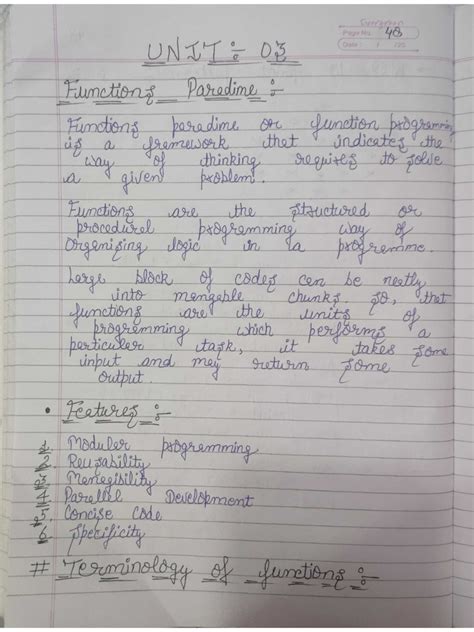 Page No. 48
Date: / /20
UNIT :- 03
Functions Paredime :-
Functions paredime or function programming
is a framework that indicates the
way of thinking requires to solve
a given problem.
Functions are the structured or
procedurel programming way of
Organising logic in a programme.
Large block of codes can be neetly
into mangable chunks. so, that
functions are the units of
programming which performs a
particuler task, it takes some
input and may return some
output.
• Features :-
1. Moduler programming
2. Reusability
3. Menegibility
4. Parellel Development
5. Concise Code
6. Specificity
# Terminology of functions :-